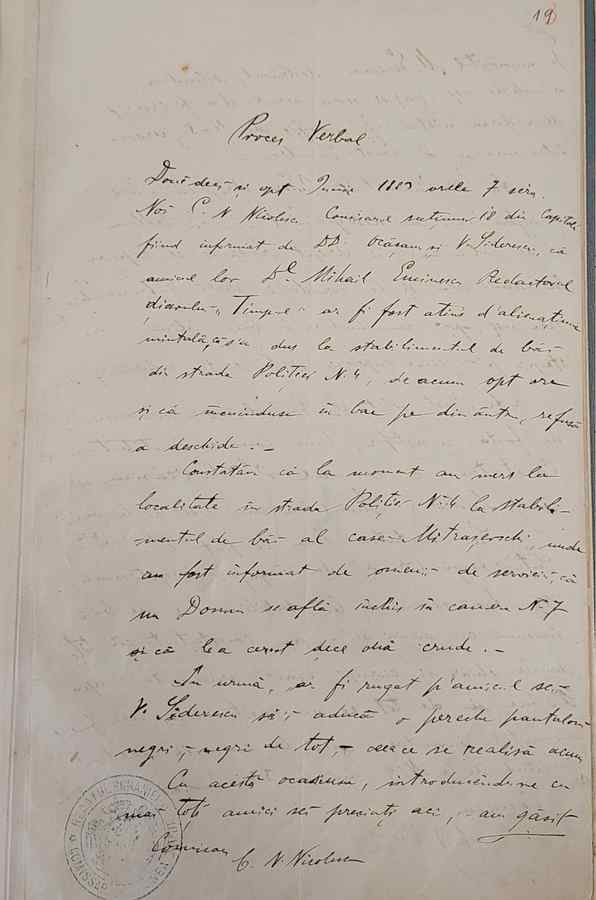 19
Proces Verbal
Două deci și opt Iunie 1883 orele 7 sera.
Noi C. N. Nicolescu Comisarul secțiunei 18 din Capitală
fiind informat de DD. Ocășanu și V. Siderescu, că
amicul lor Dl. Mihail Eminescu Redactorul
diarului „Timpul" ar fi fost atins d'alienațiune
mintală, s'a dus la stabilimentul de băi
din strada Poliției N. 4, de acum opt ore
și că încuindu-se în bae pe dinăntru, refusă
a deschide. –
Constatăm că la moment am mers la
localitate în strada Poliției N. 4 la stabili-
mentul de băi al casei Mitrașevschi, unde
am fost informat de omenii de serviciu, că
un Domn se află închis în camera N. 7
și că le-a cerut dece ouă crude. –
În urmă, ar fi rugat p'amicul seu
V. Siderescu să-i aducă o pereche pantaloni
negri, – negri de tot, – ceea ce se realisă acum
Cu acestă ocasiune, introducêndu-ne cu
mai toți amici sei presenți aci, – am găsit
Comisar C. N. Nicolescu